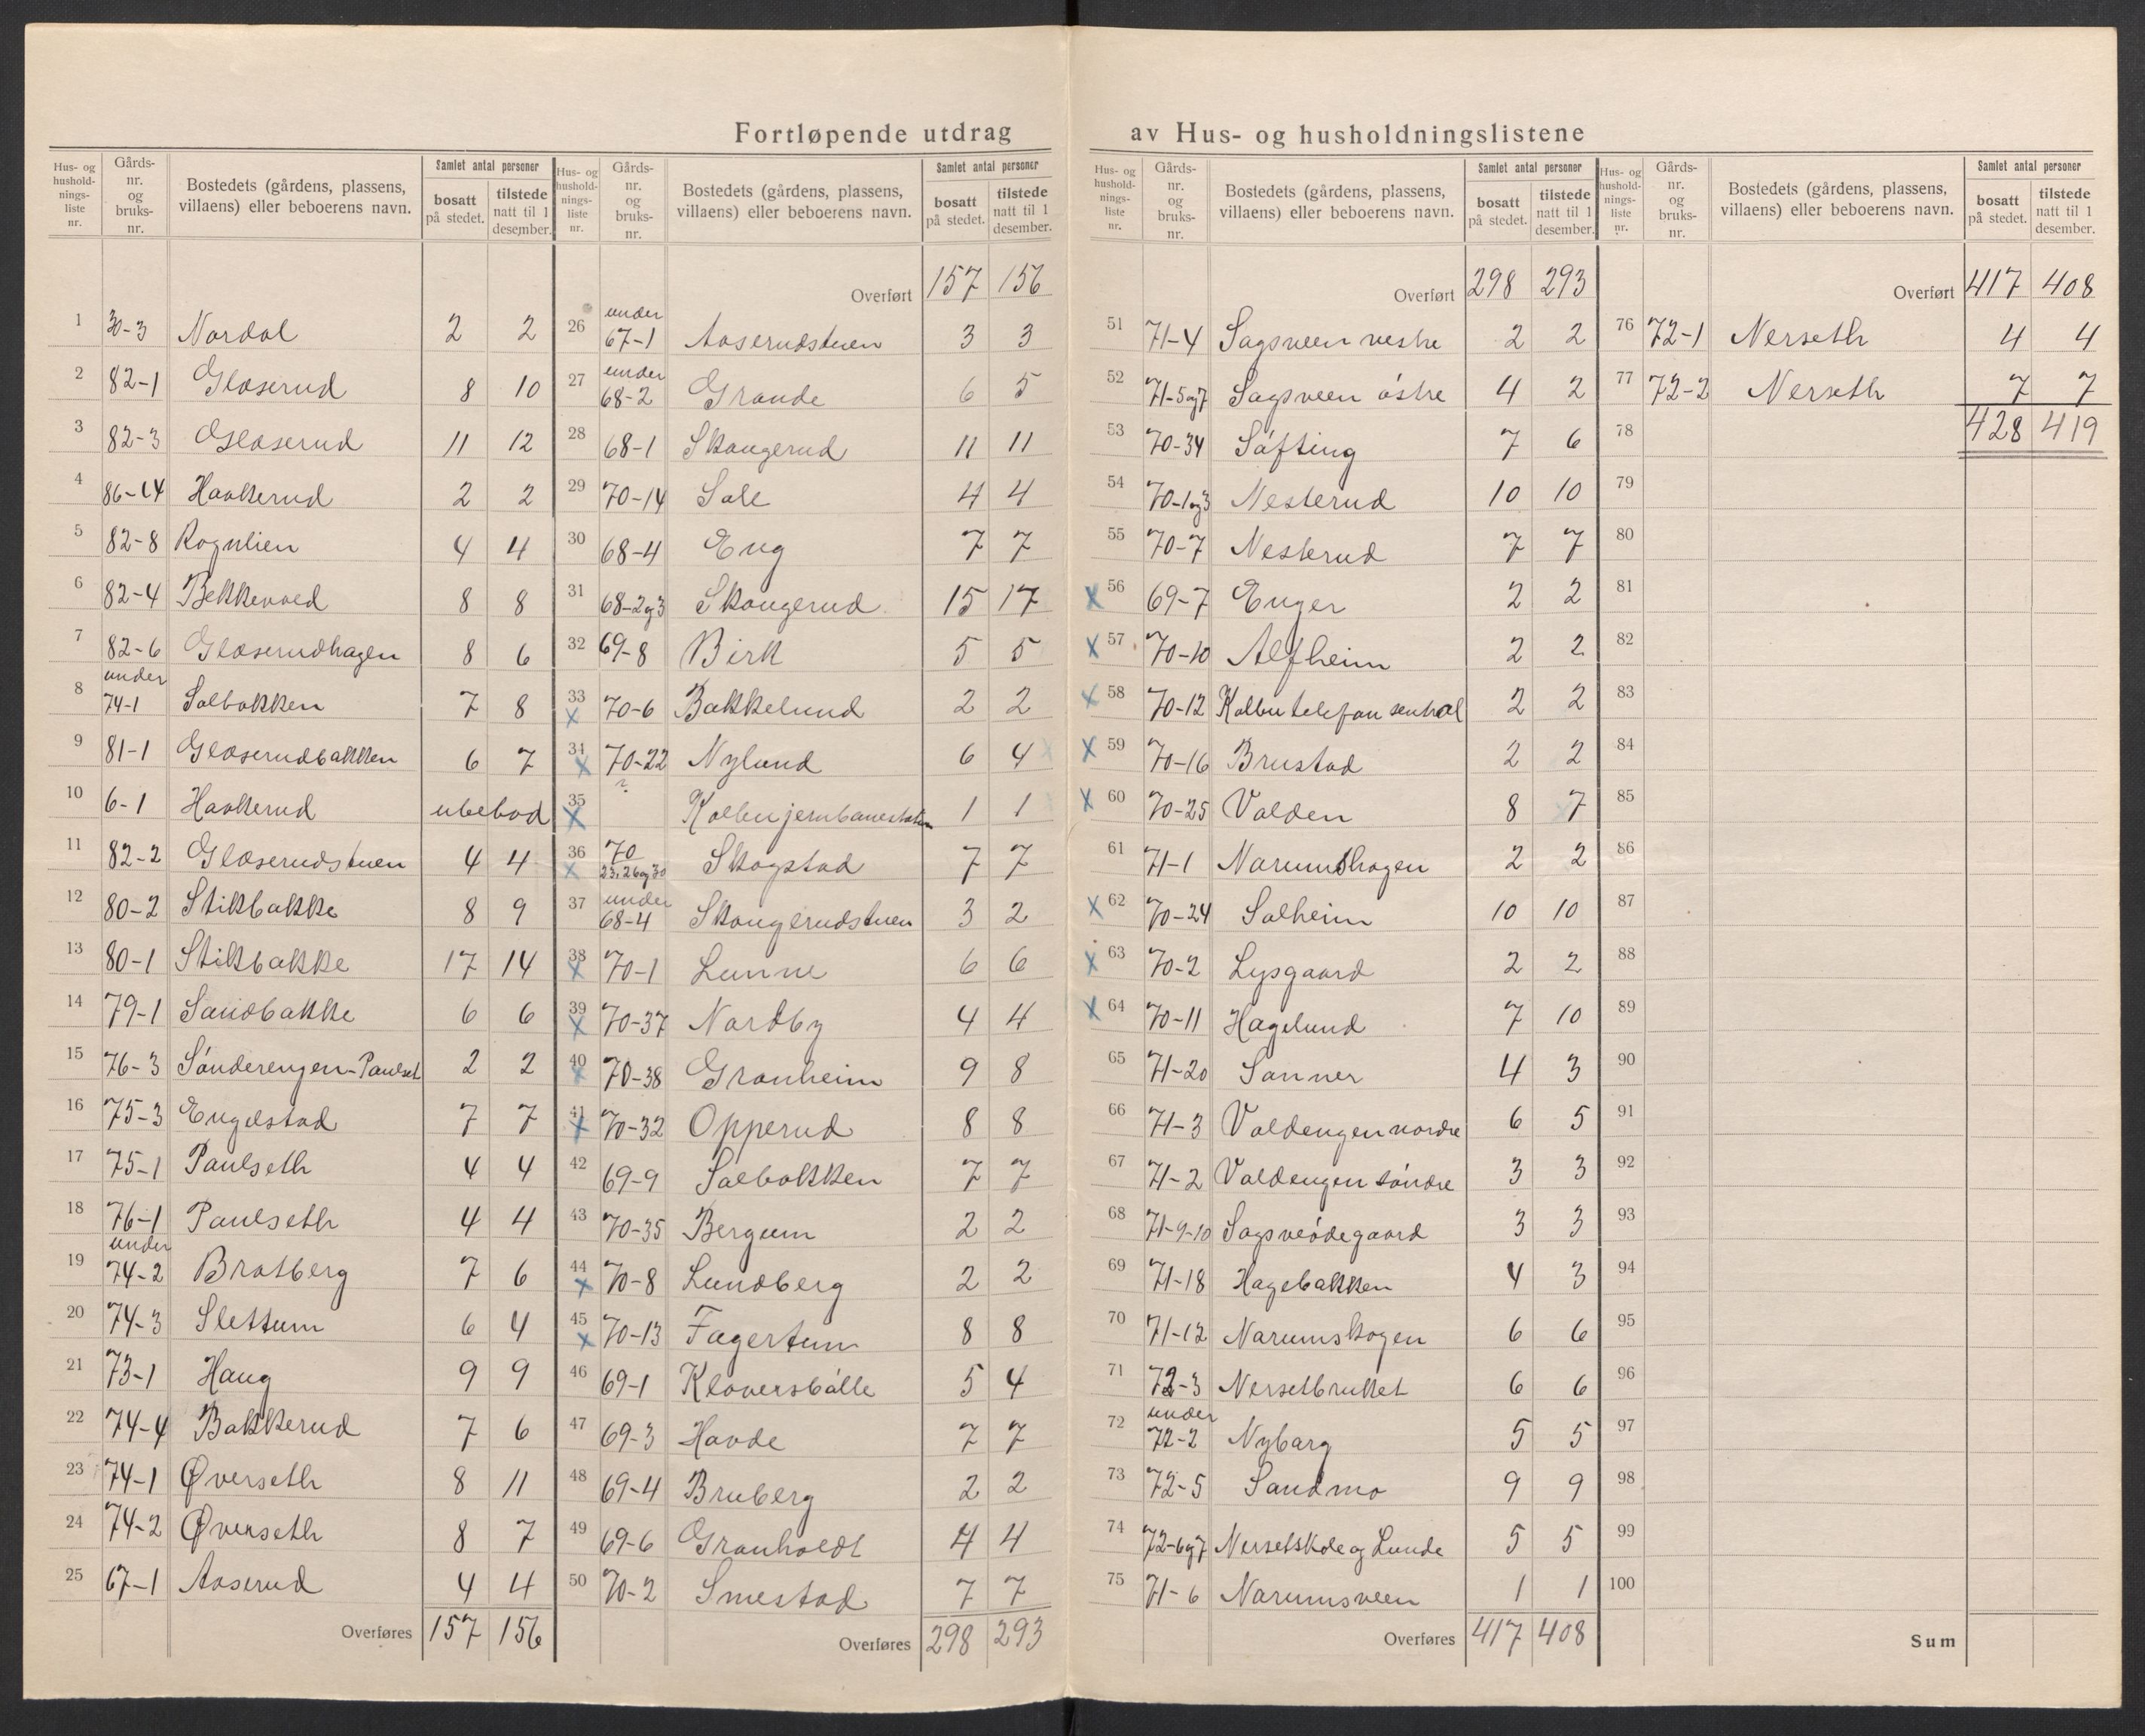 Fortløpende utdrag av Hus- og husholdningslistene
Hus- og husholdnings-liste nr. | Gårds-nr. og bruks-nr. | Bostedets (gårdens, plassens, villaens) eller beboerens navn. | Samlet antal personer | bosatt på stedet. | tilstede natt til 1 desember.
1 30-3 Nordal 2 2
2 82-1 Glæserud 8 10
3 82-3 Glæserud 11 12
4 86-14 Haakerud 2 2
5 82-8 Rognlien 4 4
6 82-4 Bekkevold 8 8
7 82-6 Glæserudhagen 8 6
8 under 74-1 Solbakken 7 8
9 81-1 Glæserudbakken 6 7
10 6-1 Haakerud ubebod
11 82-2 Glæserudstuen 4 4
12 80-2 Stikbakke 8 9
13 80-1 Stikbakke 17 14
14 79-1 Sandbakke 6 6
15 76-3 Sónderengen-Paulset 2 2
16 75-3 Engelstad 7 7
17 75-1 Paulseth 4 4
18 76-1 Paulseth 4 4
19 under 74-2 Bratberg 7 6
20 74-3 Slettum 6 4
21 73-1 Haug 9 9
22 74-4 Bakkerud 7 6
23 74-1 Øverseth 8 11
24 74-2 Øverseth 8 7
25 67-1 Aaserud 4 4
Overføres 157 156
Hus- og husholdnings-liste nr. | Gårds-nr. og bruks-nr. | Bostedets (gårdens, plassens, villaens) eller beboerens navn. | Samlet antal personer | bosatt på stedet. | tilstede natt til 1 desember.
Overført 157 156
26 under 67-1 Aaserudstuen 3 3
27 under 68-2 Grande 6 5
28 68-1 Skaugerud 11 11
29 70-14 Sole 4 4
30 68-4 Eng 7 7
31 68-2og3 Skaugerud 15 17
32 69-8 Birk 5 5
33 x 70-6 Bakkelund 2 2
34 x 70-22 Nylund 6 4
35 x ? Kolbu jernbanestation 1 1
36 x 70 23, 26og30 Skogstad 7 7
37 under 68-4 Skaugerudstuen 3 2
38 x 70-1 Lunne 6 6
39 x 70-37 Nordby 4 4
40 x 70-38 Granheim 9 8
41 x 70-32 Opperud 8 8
42 69-9 Solbakken 7 7
43 70-35 Bergum 2 2
44 x 70-8 Lundberg 2 2
45 x 70-13 Fagertun 8 8
46 69-1 Kloversbólle 5 4
47 69-3 Hovde 7 7
48 69-4 Bruberg 2 2
49 69-6 Granholdt 4 4
50 70-2 Smestad 7 7
Overføres 298 293
Hus- og husholdnings-liste nr. | Gårds-nr. og bruks-nr. | Bostedets (gårdens, plassens, villaens) eller beboerens navn. | Samlet antal personer | bosatt på stedet. | tilstede natt til 1 desember.
Overført 298 293
51 71-4 Sagsveen vestre 2 2
52 71-5og7 Sagsveen óstre 4 2
53 70-34 Sófting 7 6
54 70-1og3 Nesterud 10 10
55 70-7 Nesterud 7 7
x 56 69-7 Enger 2 2
x 57 70-10 Alfheim 2 2
x 58 70-12 Kolbu telefon sentral 2 2
x 59 70-16 Brustad 2 2
x 60 70-25 Volden 8 7
61 71-1 Narumshagen 2 2
x 62 70-24 Solheim 10 10
x 63 70-2 Lysgaard 2 2
x 64 70-11 Hagelund 7 10
65 71-20 Sanner 4 3
66 71-3 Voldengen nordre 6 5
67 71-2 Voldengen sóndre 3 3
68 71-9-10 Sagsveódegaard 3 3
69 71-18 Hagebakken 4 3
70 71-12 Narumskogen 6 6
71 72-3 Nersetbruket 6 6
72 under 72-2 Nyborg 5 5
73 72-5 Sandmo 9 9
74 72-6og7 Nersetskole og Lunde 5 5
75 71-6 Narumsveen 1 1
Overføres 417 408
Hus- og husholdnings-liste nr. | Gårds-nr. og bruks-nr. | Bostedets (gårdens, plassens, villaens) eller beboerens navn. | Samlet antal personer | bosatt på stedet. | tilstede natt til 1 desember.
Overført 417 408
76 72-1 Nerseth 4 4
77 72-2 Nerseth 7 7
78 428 419
79
80
81
82
83
84
85
86
87
88
89
90
91
92
93
94
95
96
97
98
99
100
Sum